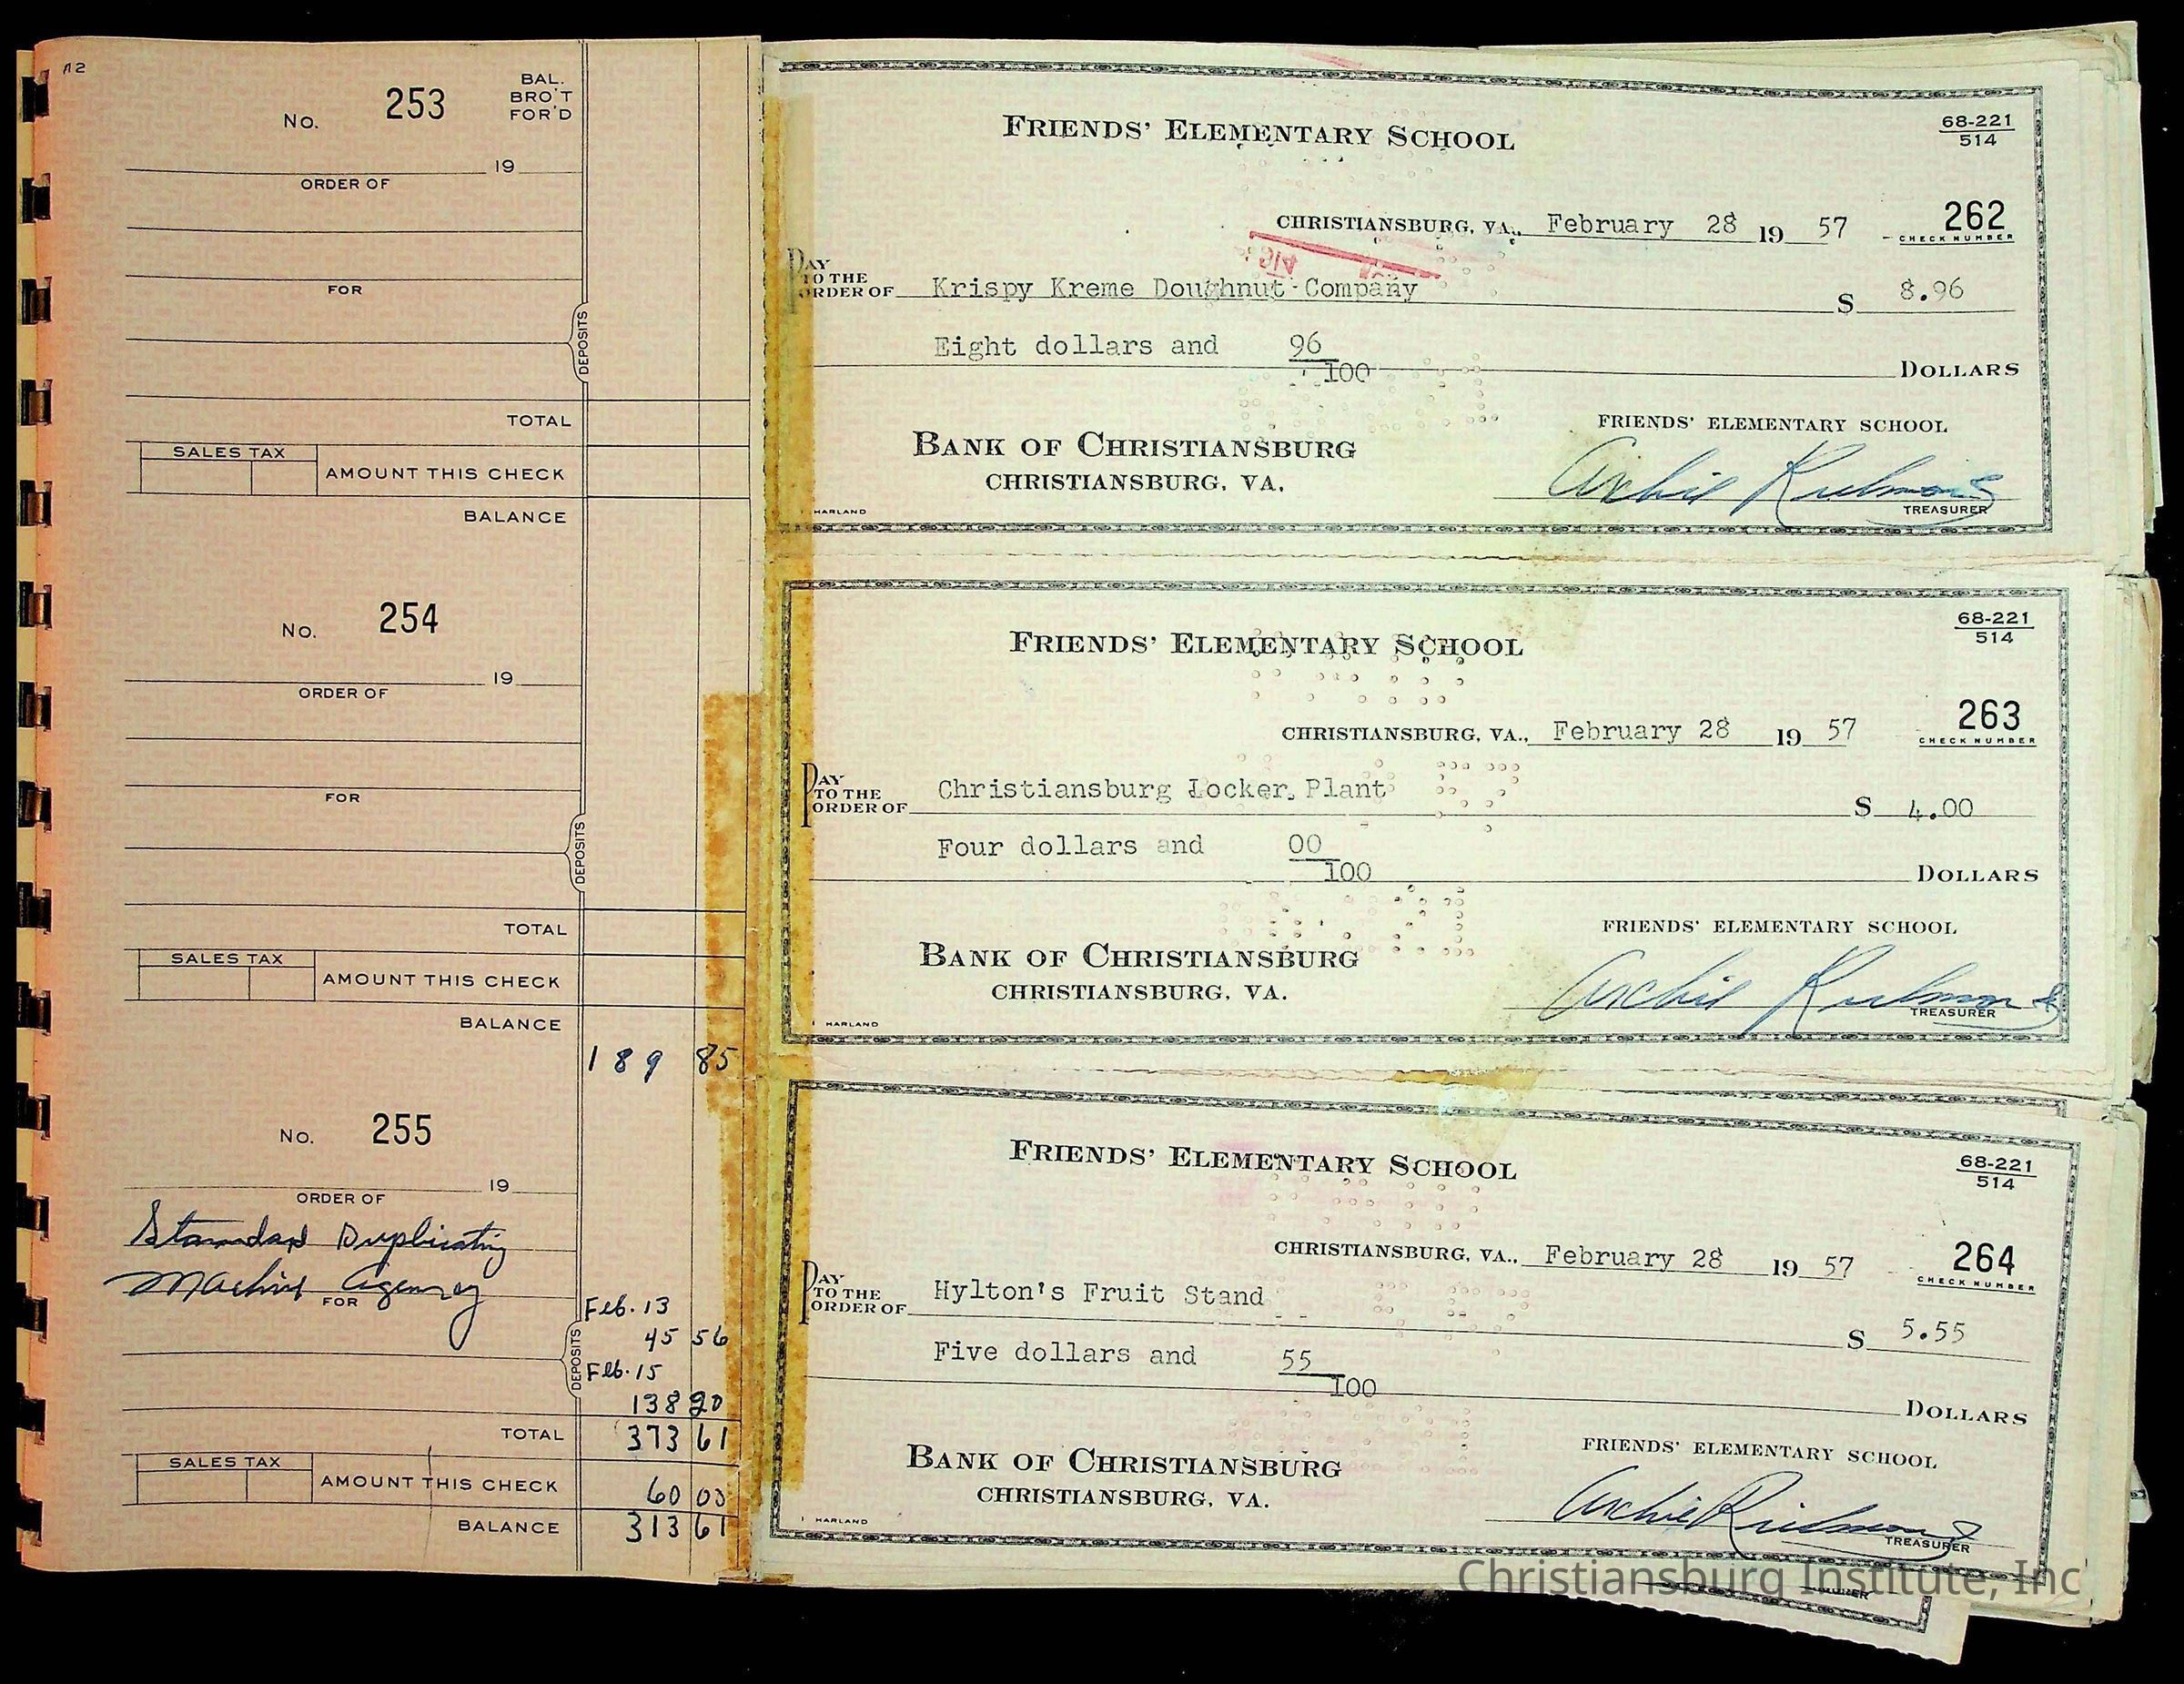 No. 253 BAL. BRO'T FOR'D
19
ORDER OF
FOR
DEPOSITS
TOTAL
SALES TAX
AMOUNT THIS CHECK
BALANCE
No. 254
19
ORDER OF
FOR
DEPOSITS
TOTAL
SALES TAX
AMOUNT THIS CHECK
BALANCE
189 85
No. 255
19
ORDER OF
Standard Duplicating
Machine Agency
FOR
Feb. 13
45 56
DEPOSITS
Feb. 15
138 20
TOTAL 373 61
SALES TAX
AMOUNT THIS CHECK 60 00
BALANCE 313 61
FRIENDS' ELEMENTARY SCHOOL
68-221
514
CHRISTIANSBURG, VA., February 28 19 57
262
CHECK NUMBER
PAY TO THE ORDER OF Krispy Kreme Doughnut Company $ 8.96
Eight dollars and 96
100 DOLLARS
BANK OF CHRISTIANSBURG
CHRISTIANSBURG, VA.
FRIENDS' ELEMENTARY SCHOOL
Archie Richmond
TREASURER
HARLAND
FRIENDS' ELEMENTARY SCHOOL
68-221
514
CHRISTIANSBURG, VA., February 28 19 57
263
CHECK NUMBER
PAY TO THE ORDER OF Christiansburg Locker Plant $ 4.00
Four dollars and 00
100 DOLLARS
BANK OF CHRISTIANSBURG
CHRISTIANSBURG, VA.
FRIENDS' ELEMENTARY SCHOOL
Archie Richmond
TREASURER
HARLAND
FRIENDS' ELEMENTARY SCHOOL
68-221
514
CHRISTIANSBURG, VA., February 28 19 57
264
CHECK NUMBER
PAY TO THE ORDER OF Hylton's Fruit Stand $ 5.55
Five dollars and 55
100 DOLLARS
BANK OF CHRISTIANSBURG
CHRISTIANSBURG, VA.
FRIENDS' ELEMENTARY SCHOOL
Archie Richmond
TREASURER
HARLAND
Christiansburg Institute, Inc